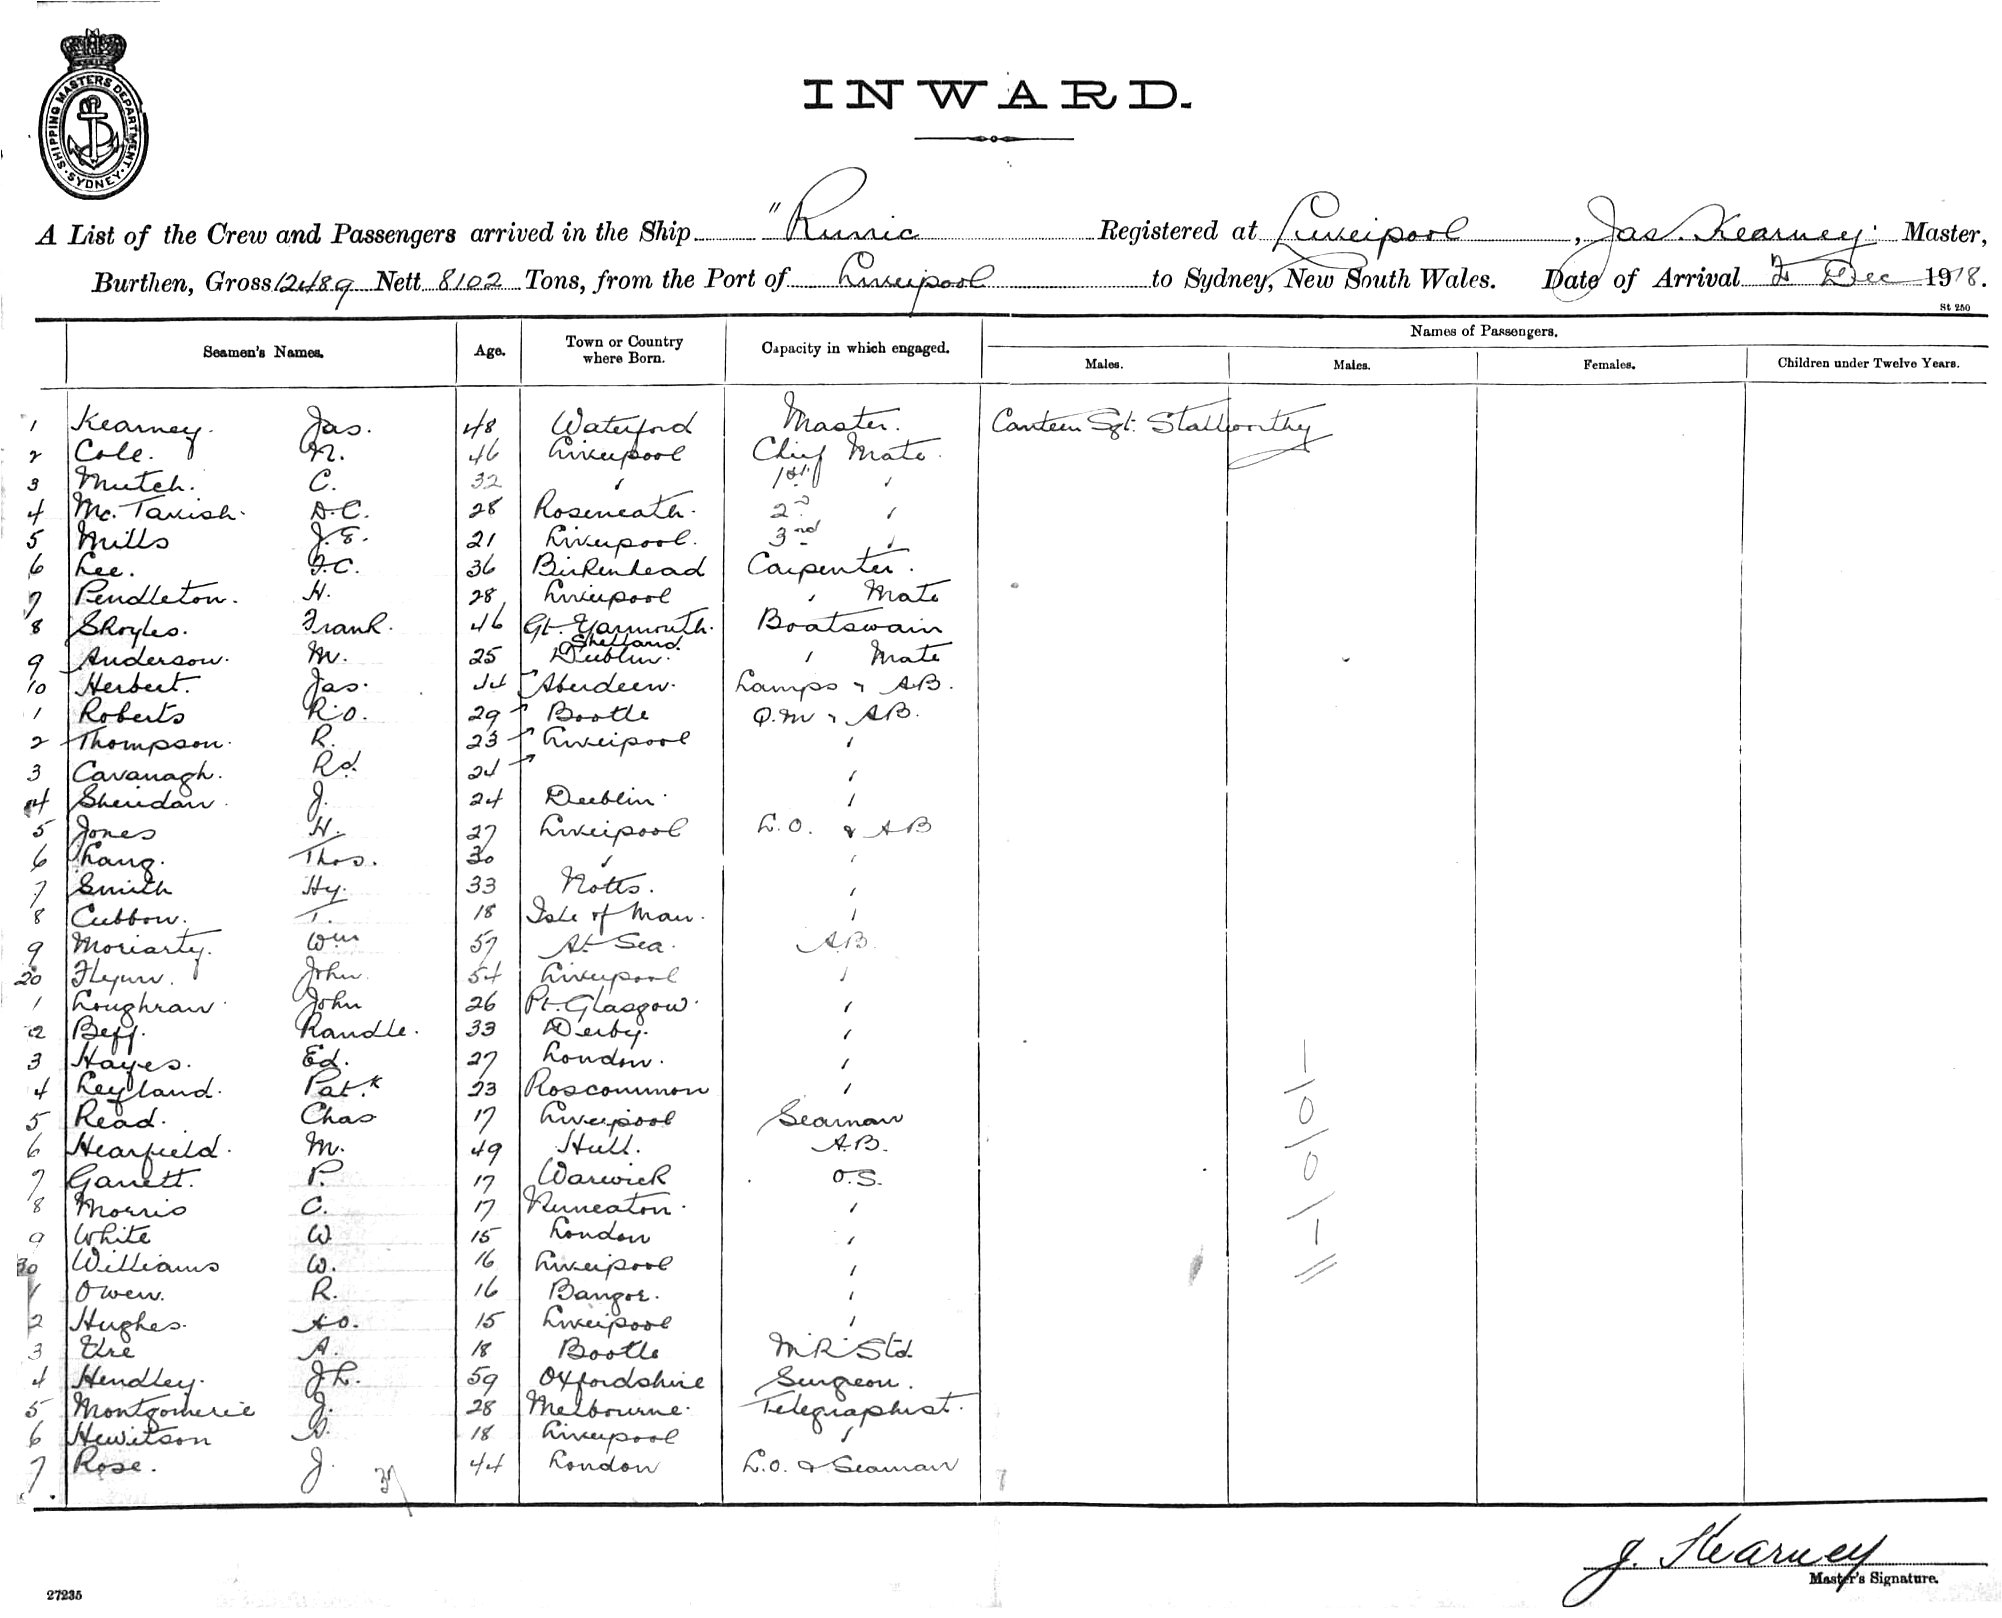 SHIPPING MASTERS DEPARTMENT. SYDNEY.
INWARD.
A List of the Crew and Passengers arrived in the Ship "Runic Registered at Liverpool, Jas. Kearney Master,
Burthen, Gross 12489 Nett 8102 Tons, from the Port of Liverpool to Sydney, New South Wales. Date of Arrival 2 Dec 1918.
St 250
Seamen's Names. Age. Town or Country where Born. Capacity in which engaged. Names of Passengers.
Males. Males. Females. Children under Twelve Years.
1 Kearney. Jas. 48 Waterford Master. Canteen Sgt. Stallworthy
2 Cole. N. 46 Liverpool Chief Mate.
3 Mutch. C. 32 " 1st "
4 Mc.Tavish. D.C. 28 Roseneath. 2nd "
5 Mills J.E. 21 Liverpool. 3rd "
6 Lee. F.C. 36 Birkenhead Carpenter.
7 Pendleton. H. 28 Liverpool " Mate
8 Skoyles. Frank. 46 Gt. Yarmouth. Boatswain
9 Anderson. M. 25 Shetland. Dublin. " Mate
10 Herbert. Jas. 44 Aberdeen. Lamps & AB.
1 Roberts Rd. 29 Bootle Q.M & AB.
2 Thompson. R. 23 Liverpool "
3 Cavanagh. Rd. 24 "
4 Sheridan. J. 24 Dublin. "
5 Jones H. 27 Liverpool L.O. & AB
6 Lang. Thos. 30 " "
7 Smith Hy. 33 Notts. "
8 Cubbon. T. 18 Isle of Man. "
9 Moriarty. Wm 57 At Sea. AB.
20 Flynn. John. 54 Liverpool "
1 Loughran. John 26 Pt. Glasgow. "
2 Randle. 33 Derby. "
3 Hayes. Ed. 27 London. "
4 Leyland. Pat.k 23 Roscommon "
5 Read. Chas 17 Liverpool Seaman
6 Hearfield. M. 49 Hull. A.B.
7 Garrett. P. 17 Warwick O.S.
8 Morris C. 17 Nuneaton. "
9 White W. 15 London "
30 Williams W. 16 Liverpool "
1 Owen. R. 16 Bangor. "
2 Hughes. 15 Liverpool "
3 Ure A. 18 Bootle M.R. Std.
4 Hendley. J.L. 59 Oxfordshire Surgeon.
5 Montgomerie J. 28 Melbourne. Telegraphist.
6 Hewitson 18 Liverpool "
7 Rose. J. 44 London L.O. & Seaman
37
J. Kearney
Master's Signature.
27235